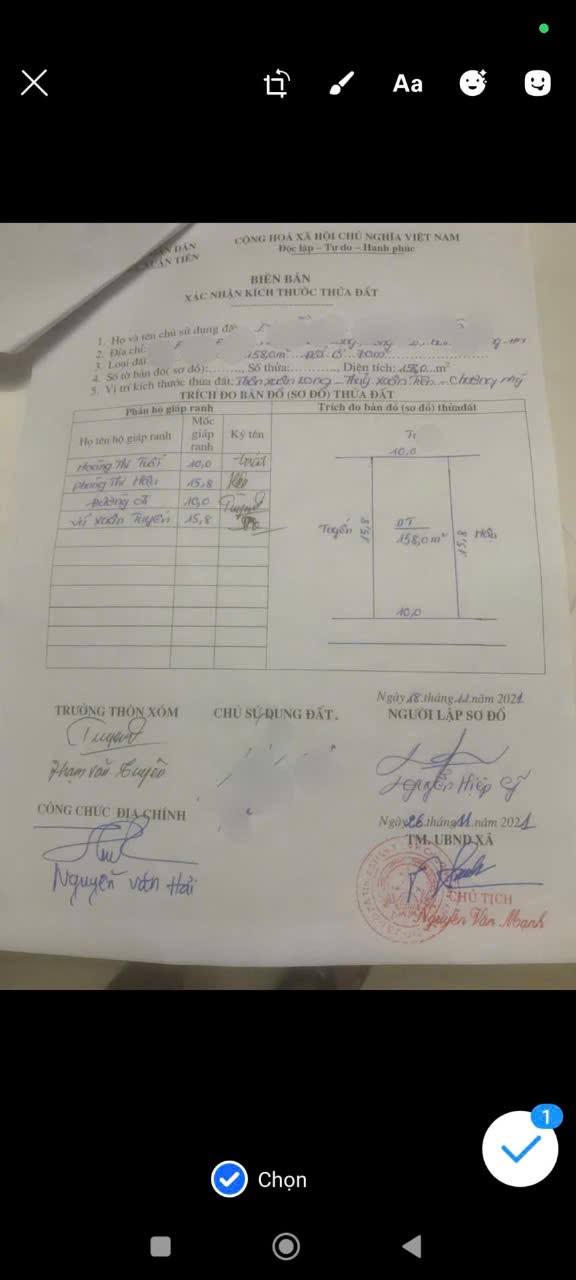 Aa
CỘNG HOÀ XÃ HỘI CHỦ NGHĨA VIỆT NAM
Độc lập – Tự do – Hạnh phúc
DÂN
TIẾN
BIÊN BẢN
XÁC NHẬN KÍCH THƯỚC THỬA ĐẤT
1. Họ và tên chủ sử dụng đất
2. Địa chỉ:
3. Loại đất 158,0m²
4. Số tờ bản đồ( sơ đồ):........, Số thửa:............, Diện tích: 158,0..m²
5. Vị trí kích thước thửa đất: Thôn xuân Long – Thuỷ xuân Tiên – Chương mỹ
TRÍCH ĐO BẢN ĐỒ (SƠ ĐỒ) THỬA ĐẤT
Phần hộ giáp ranh Trích đo bản đồ (sơ đồ) thửa đất
Họ tên hộ giáp ranh Mốc giáp ranh Ký tên
Hoàng Thị Tuất 10,0
phùng Thị Hậu 15,8
Đường đi 10,0
Vũ xuân Tuyến 15,8
10,0
Tuyến 15,8 DT 158,0m² 15,8 Hậu
10,0
Ngày 18.tháng.11.năm 2021
TRƯỞNG THÔN XÓM CHỦ SỬ DỤNG ĐẤT. NGƯỜI LẬP SƠ ĐỒ
Phạm văn Tuyên Nguyễn Hiệp Sỹ
CÔNG CHỨC ĐỊA CHÍNH Ngày 26.tháng 11.năm 2021
TM. UBND XÃ
Nguyễn văn Hải
CHỦ TỊCH
Nguyễn Văn Mạnh
1
Chọn